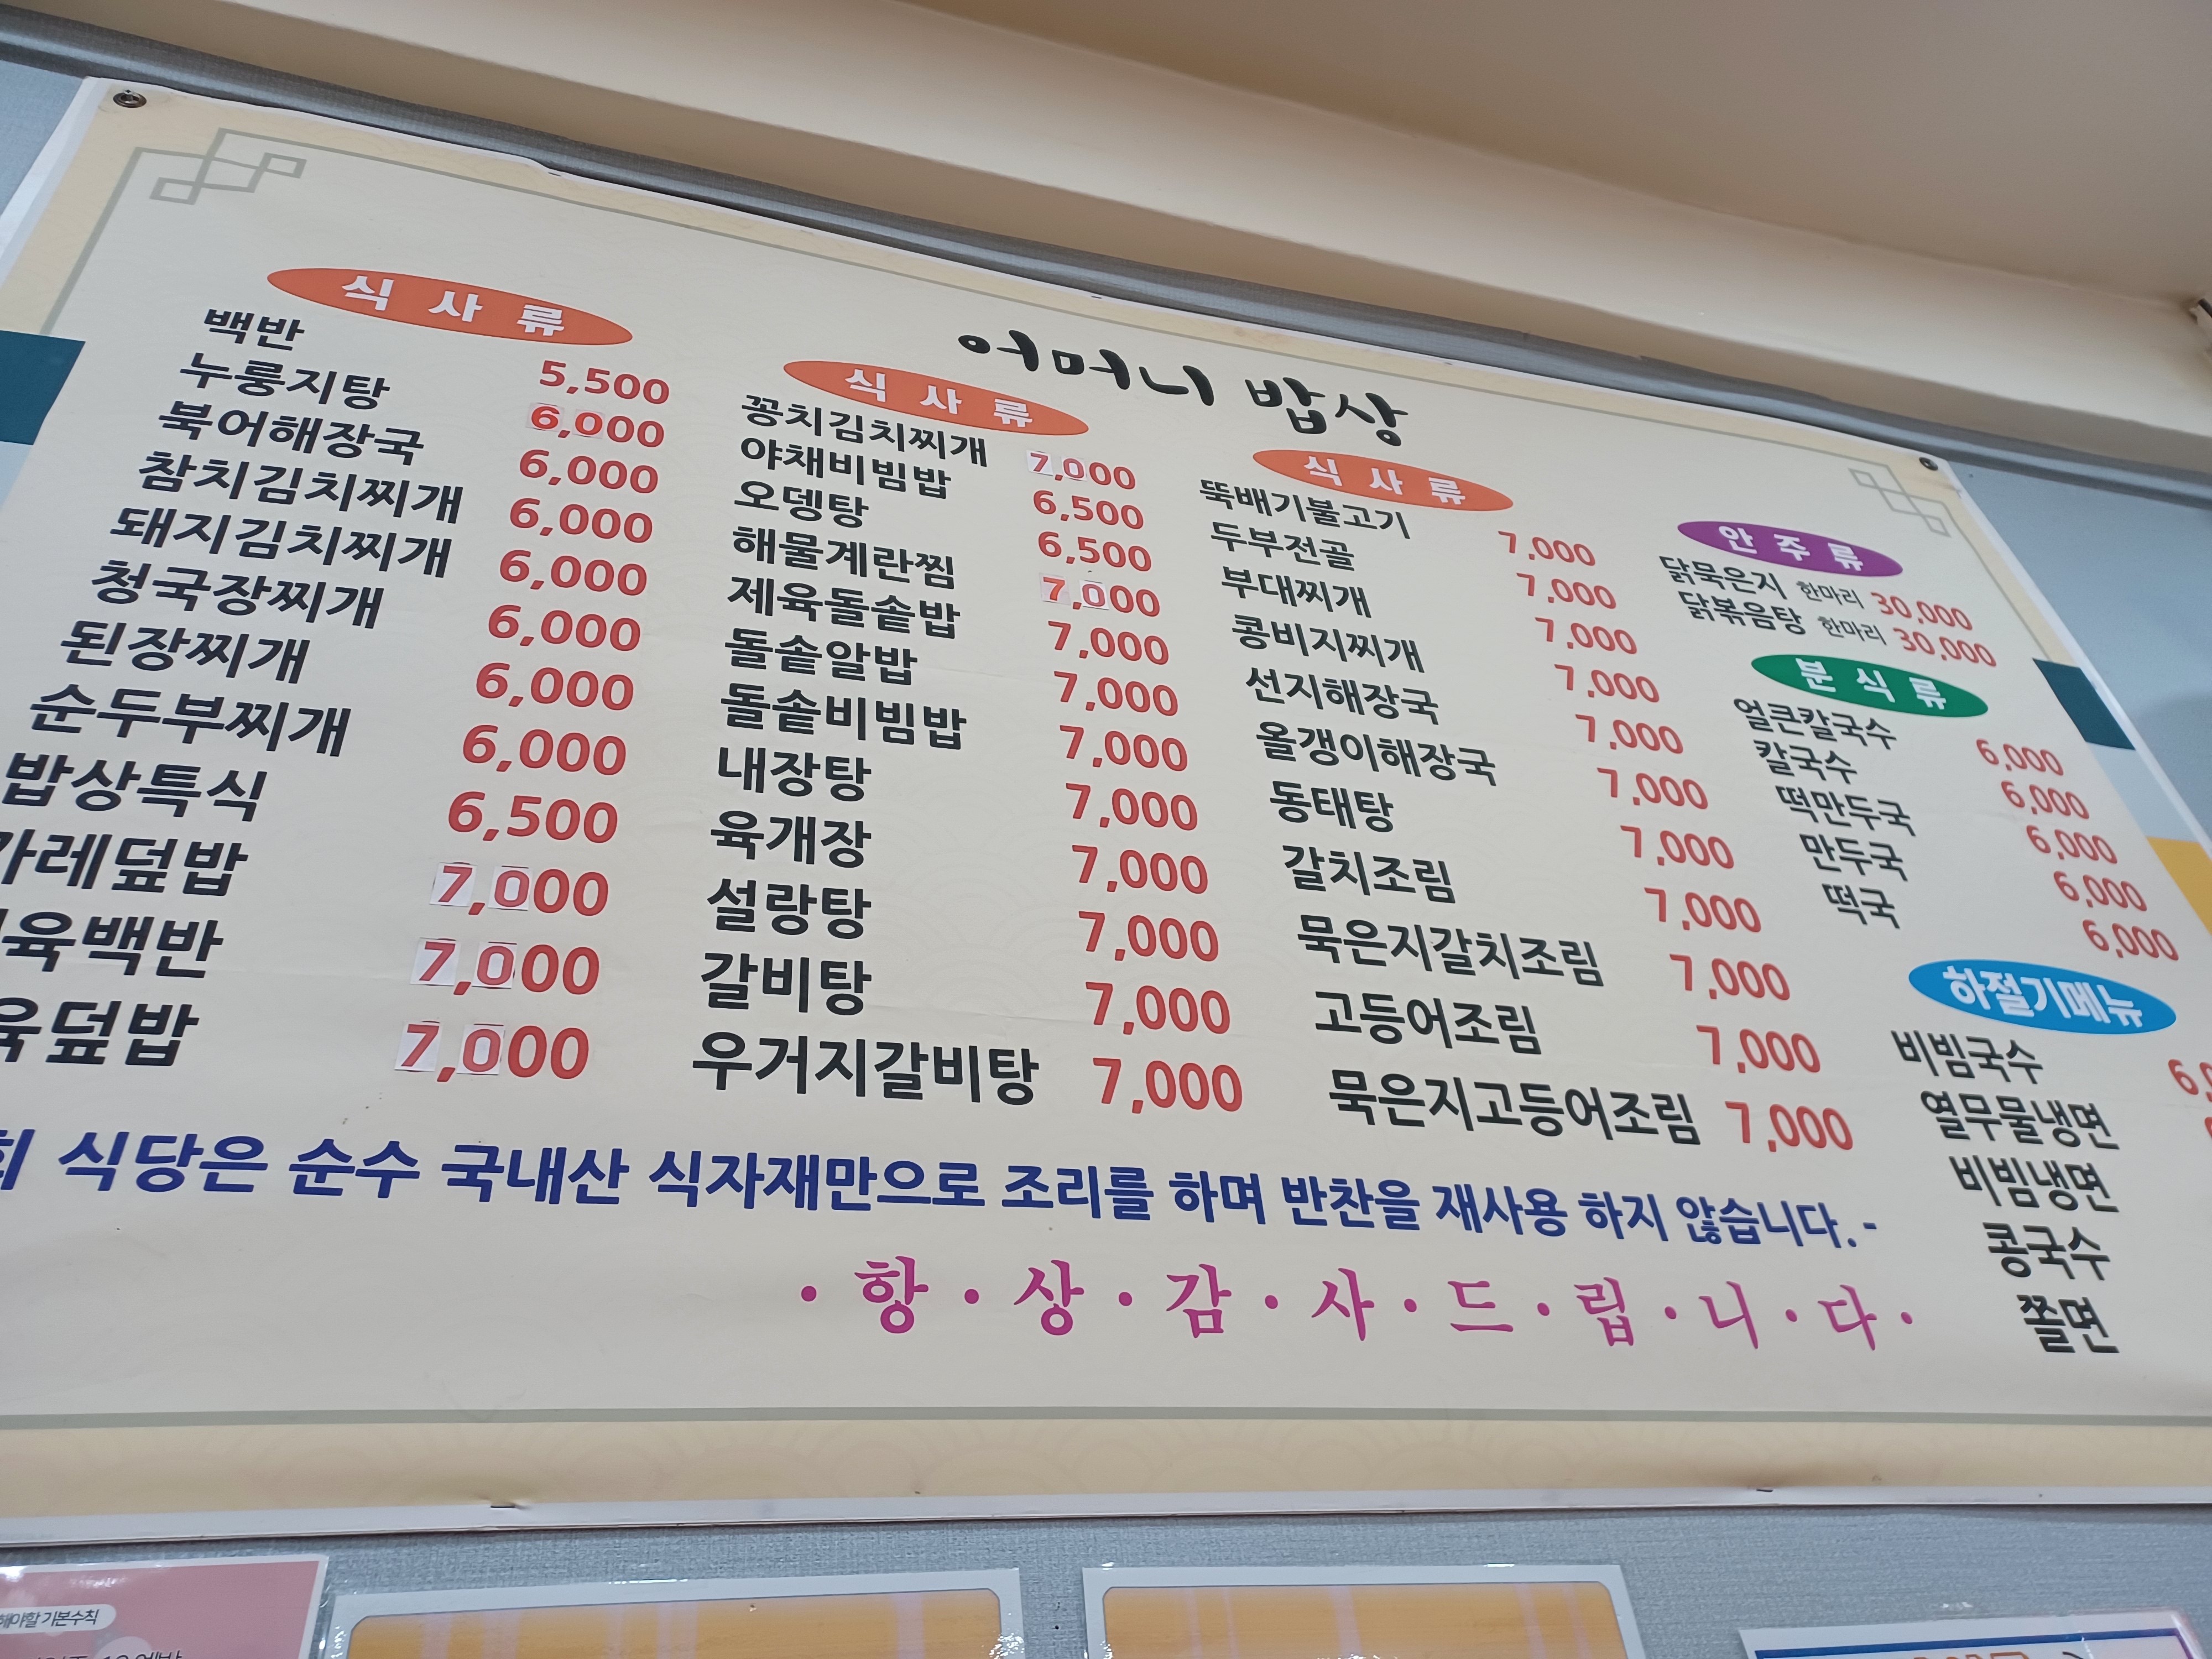 어머니 밥상
식사류
백반 5,500
누룽지탕 6,000
북어해장국 6,000
참치김치찌개 6,000
돼지김치찌개 6,000
청국장찌개 6,000
된장찌개 6,000
순두부찌개 6,000
밥상특식 6,500
카레덮밥 7,000
육백반 7,000
육덮밥 7,000
식사류
꽁치김치찌개 7,000
야채비빔밥 6,500
오뎅탕 6,500
해물계란찜 7,000
제육돌솥밥 7,000
돌솥알밥 7,000
돌솥비빔밥 7,000
내장탕 7,000
육개장 7,000
설랑탕 7,000
갈비탕 7,000
우거지갈비탕 7,000
식사류
뚝배기불고기 7,000
두부전골 7,000
부대찌개 7,000
콩비지찌개 7,000
선지해장국 7,000
올갱이해장국 7,000
동태탕 7,000
갈치조림 7,000
묵은지갈치조림 7,000
고등어조림 7,000
묵은지고등어조림 7,000
안주류
닭묵은지 한마리 30,000
닭볶음탕 한마리 30,000
분식류
얼큰칼국수 6,000
칼국수 6,000
떡만두국 6,000
만두국 6,000
떡국 6,000
하절기메뉴
비빔국수
열무물냉면
비빔냉면
콩국수
쫄면
희 식당은 순수 국내산 식자재만으로 조리를 하며 반찬을 재사용 하지 않습니다.-
·항·상·감·사·드·립·니·다·
해야할 기본수칙